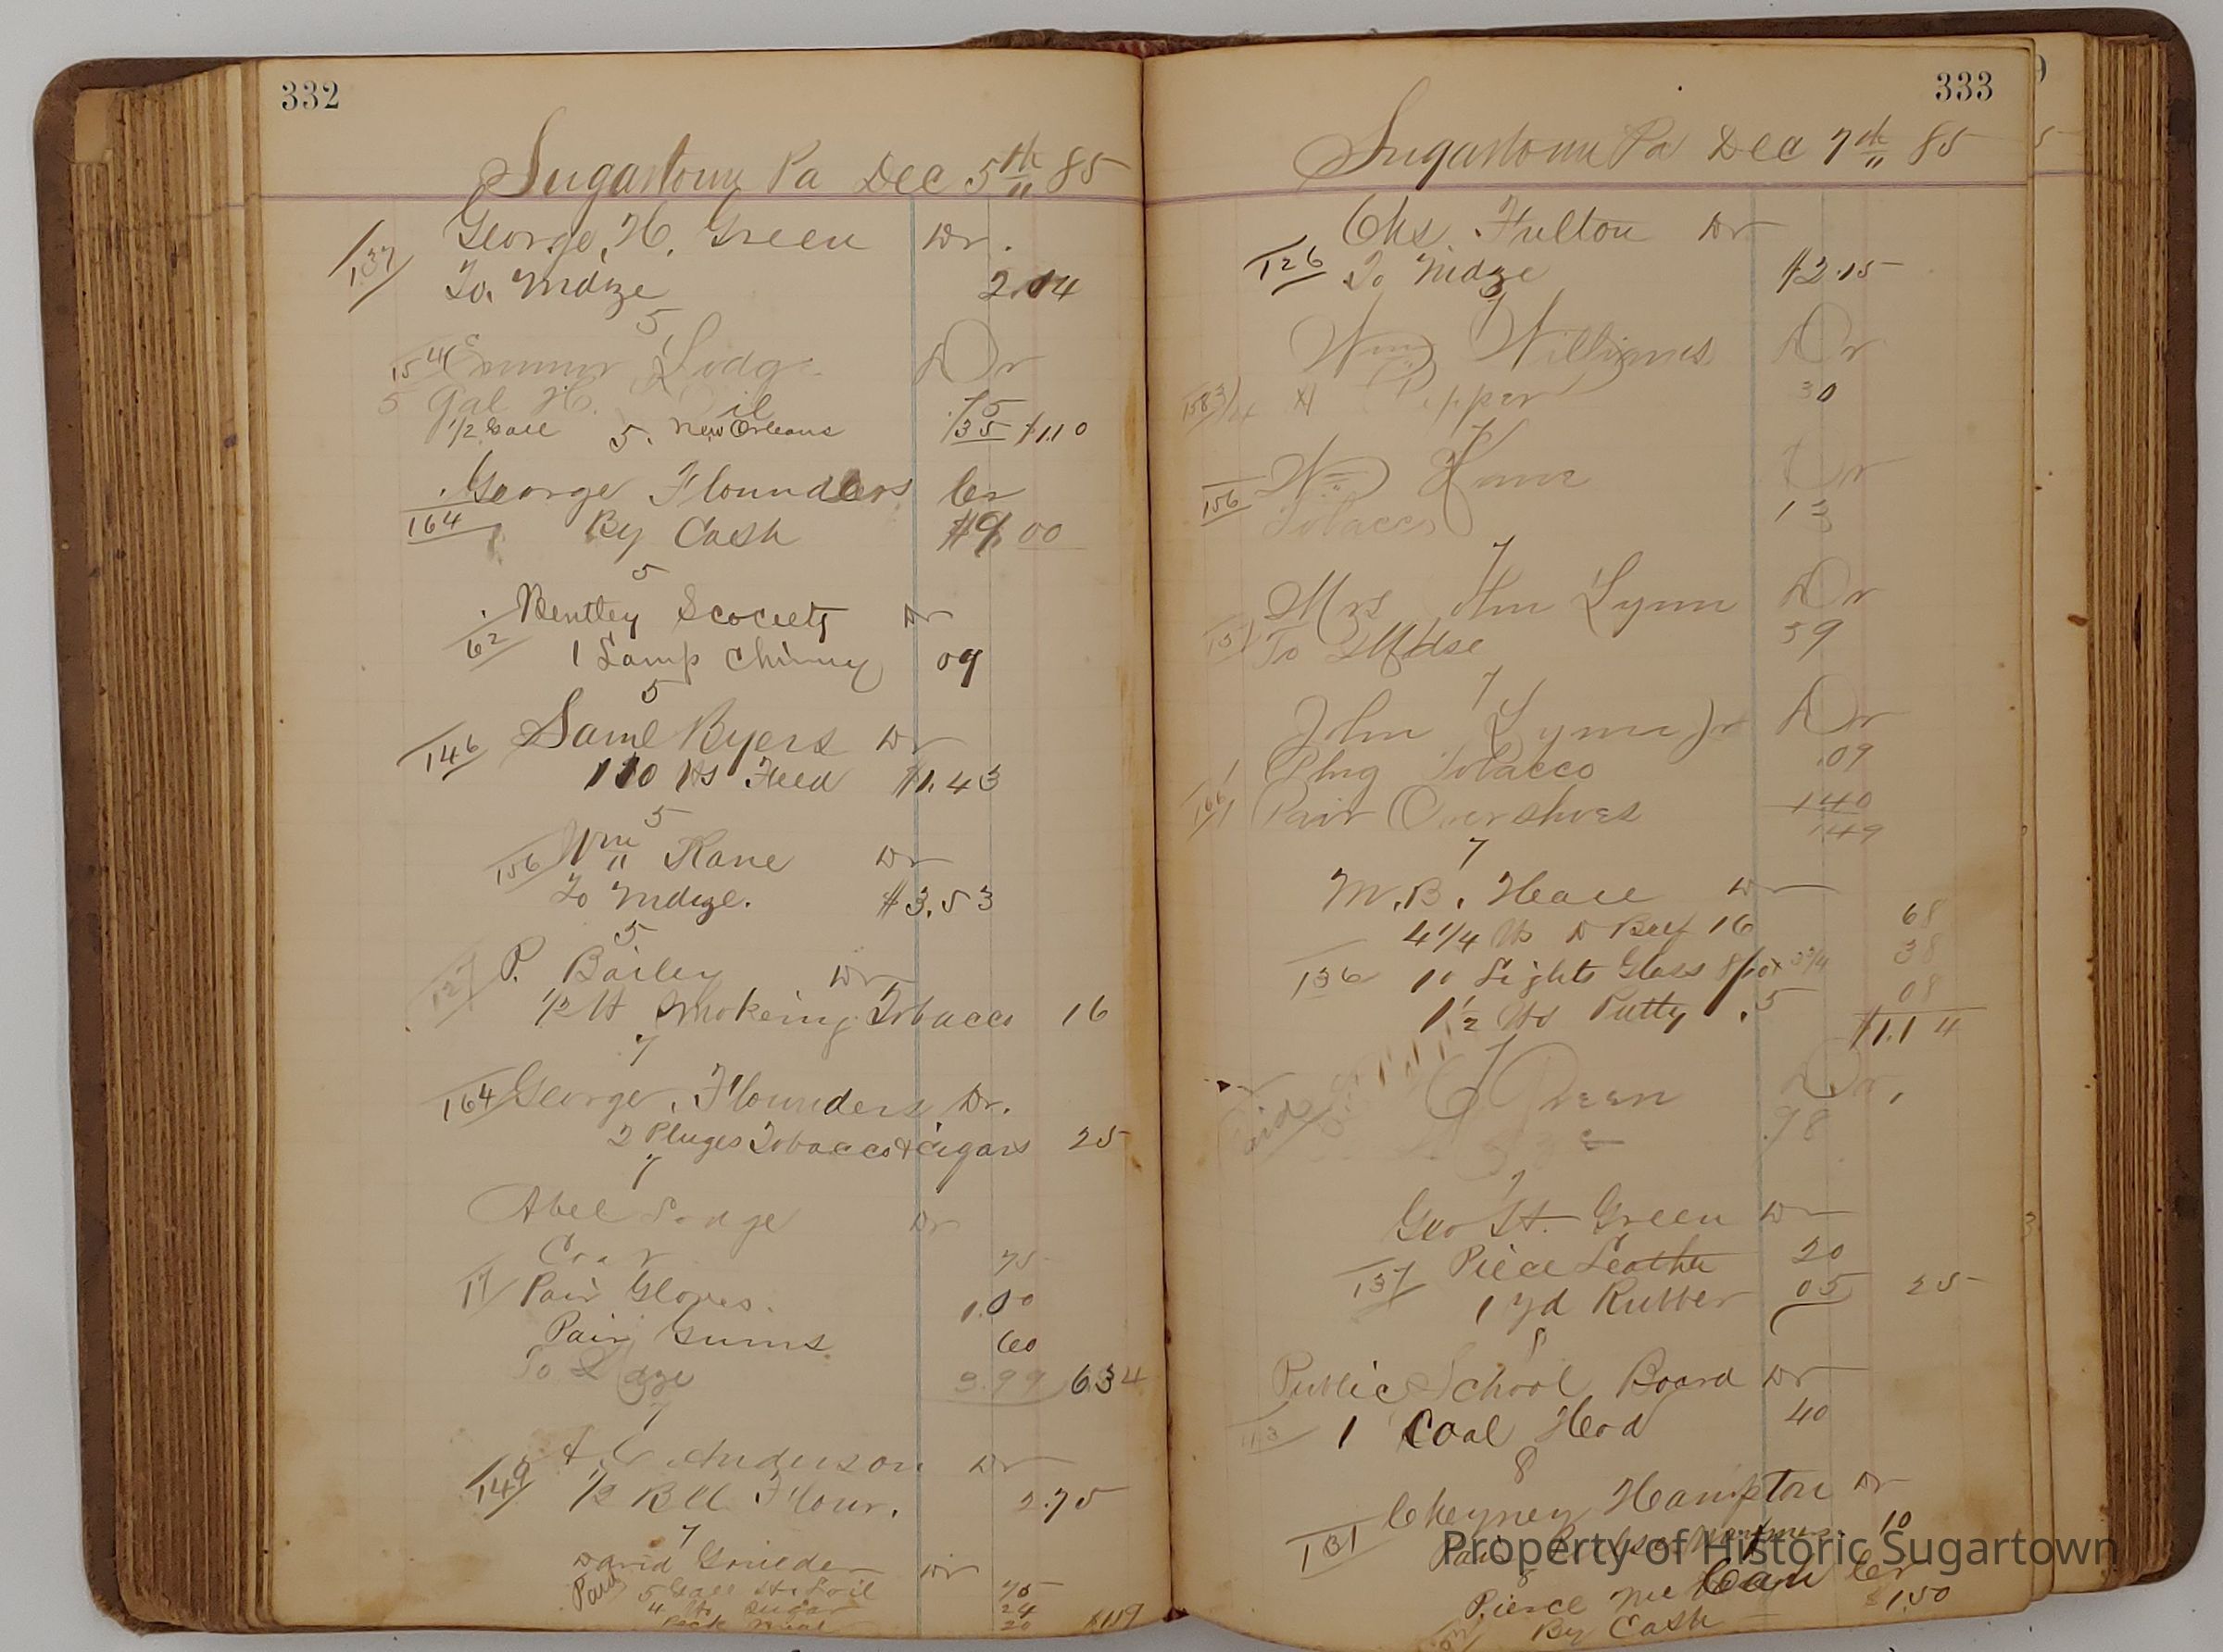 332
Sugartown Pa Dec 5th 85
George H. Green Dr.
137
To Mdze 2.04
5
154 Lodge Dr
5 Gal H. Oil 75
1/2 Gall New Orleans 35 $1.10
5
George Flounders Cr
164 By Cash $9.00
5
Bentley Scociety Dr
62 1 Lamp Chimny 09
5
Saml Byers Dr
146 110 lbs Feed $1.43
5
Wm Kane Dr
156
To Mdze. $3.53
5
P. Bailey Dr
127 1/2 lb Smokeing Tobacco 16
7
164 George Flounders Dr.
2 Pluges Tobacco & Cigars 25
7
Abel Lodge Dr
75
17 Pair Gloves. 1.00
Pair Gums 60
To 3.99 6.34
7
Anderson Dr
149 1/2 Bll Flour. 2.75
7
David Dr
Paid 5 Gall 75
4 lbs Sugar 24
Peck Meal 20 $1.19
333
Sugartown Pa Dec 7th 85
Chs. Fulton Dr
126 To Mdze $2.15
7
Wm Williams Dr
158 Pepper 30
7
Wm Kane Dr
156 Tobacco 13
7
Mrs John Lynn Dr
To Mdse 59
7
John Lynn Jr Dr
1 Plug Tobacco .09
166 1 Pair Overshoes 140
149
7
M.B. Dr
4 1/4 lbs D Beef 16 68
136 10 Lights Glass 8/10 x 3 3/4 38
1 1/2 lbs Putty .5 08
$1.14
7
Green Dr,
Paid .98
7
Geo H. Green Dr
Piece Leather 20
137 1 yd Rubber 05 25
8
Public School Board Dr
113 1 Coal Hod 40
8
Cheyney Hampton Dr
131 Pair 10
8
Pierce Cr
By Cash $1.50
Property of Historic Sugartown